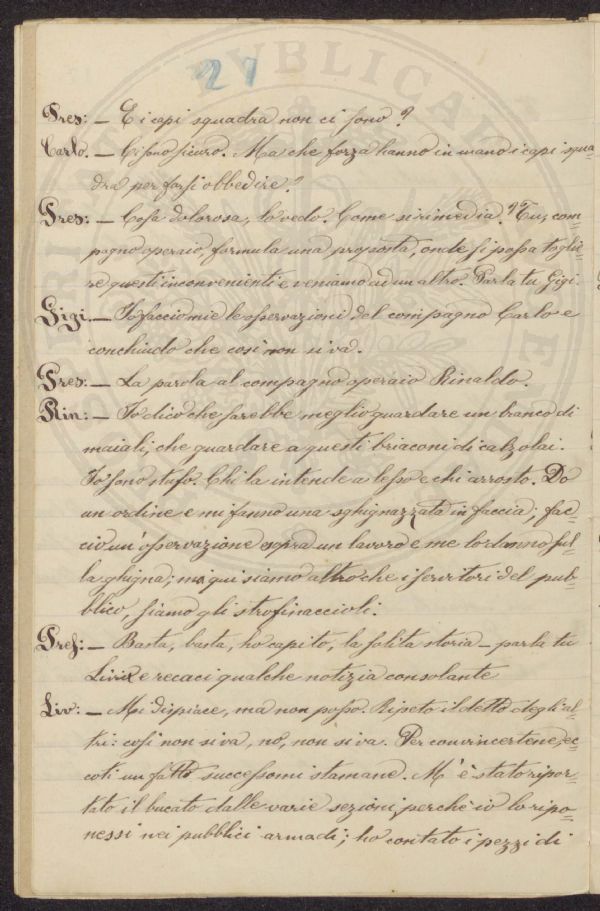 27
Pres: — E i capi squadra non ci sono?
Carlo. — Ci sono sicuro. Ma che forza hanno in mano i capi squa=
dra per farsi obbedire?
Pres: — Cosa dolorosa, lo vedo. Come si rimedia? Tu, com=
pagno operaio, formula una proposta, onde si possa toglie=
re questi inconvenienti e veniamo ad un altro. Parla tu Gigi.
Gigi. — Io faccio mie le osservazioni del compagno Carlo e
conchiudo che così non si va.
Pres: — La parola al compagno operaio Rinaldo.
Rin: — Io dico che sarebbe meglio guardare un branco di
maiali, che guardare a questi briaconi di calzolai.
Io sono stufo. Chi la intende a lesso e chi arrosto. Do
un ordine e mi fanno una sghignazzata in faccia; fac=
cio un'osservazione sopra un lavoro e me lo danno sul=
la ghigna; ma qui siamo altro che i servitori del pub=
blico, siamo gli strofinaccioli.
Pres: — Basta, basta, ho capito, la solita storia — parla tu
Livio e recaci qualche notizia consolante
Liv: — Mi dispiace, ma non posso. Ripeto il detto degli al=
tri: così non si va, no, non si va. Per convincertene, ec=
coti un fatto successomi stamane. M'è stato ripor=
tato il bucato dalle varie sezioni, perchè io lo ripo=
nessi nei pubblici armadi; ho contato i pezzi di